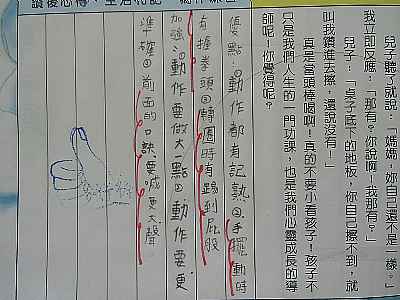 兒子聽了就說：「媽媽，妳自己還不是一樣。」
我立即反應：「那有？你說啊！我那有？」
兒子：「桌子底下的地板，你自己擦不到，就
叫我鑽進去擦，還說沒有！」
真是當頭棒喝啊！真的不要小看孩子！孩子不
只是我們人生的一門功課，也是我們心靈成長的導
師呢！你覺得呢？
讀後心得、生活札記
優點：動作都有記熟②手擺動時
有握拳頭③轉圈時有踢到屁股
加強：動作要做大一點②動作要更
準確③前面的口訣要喊更大聲